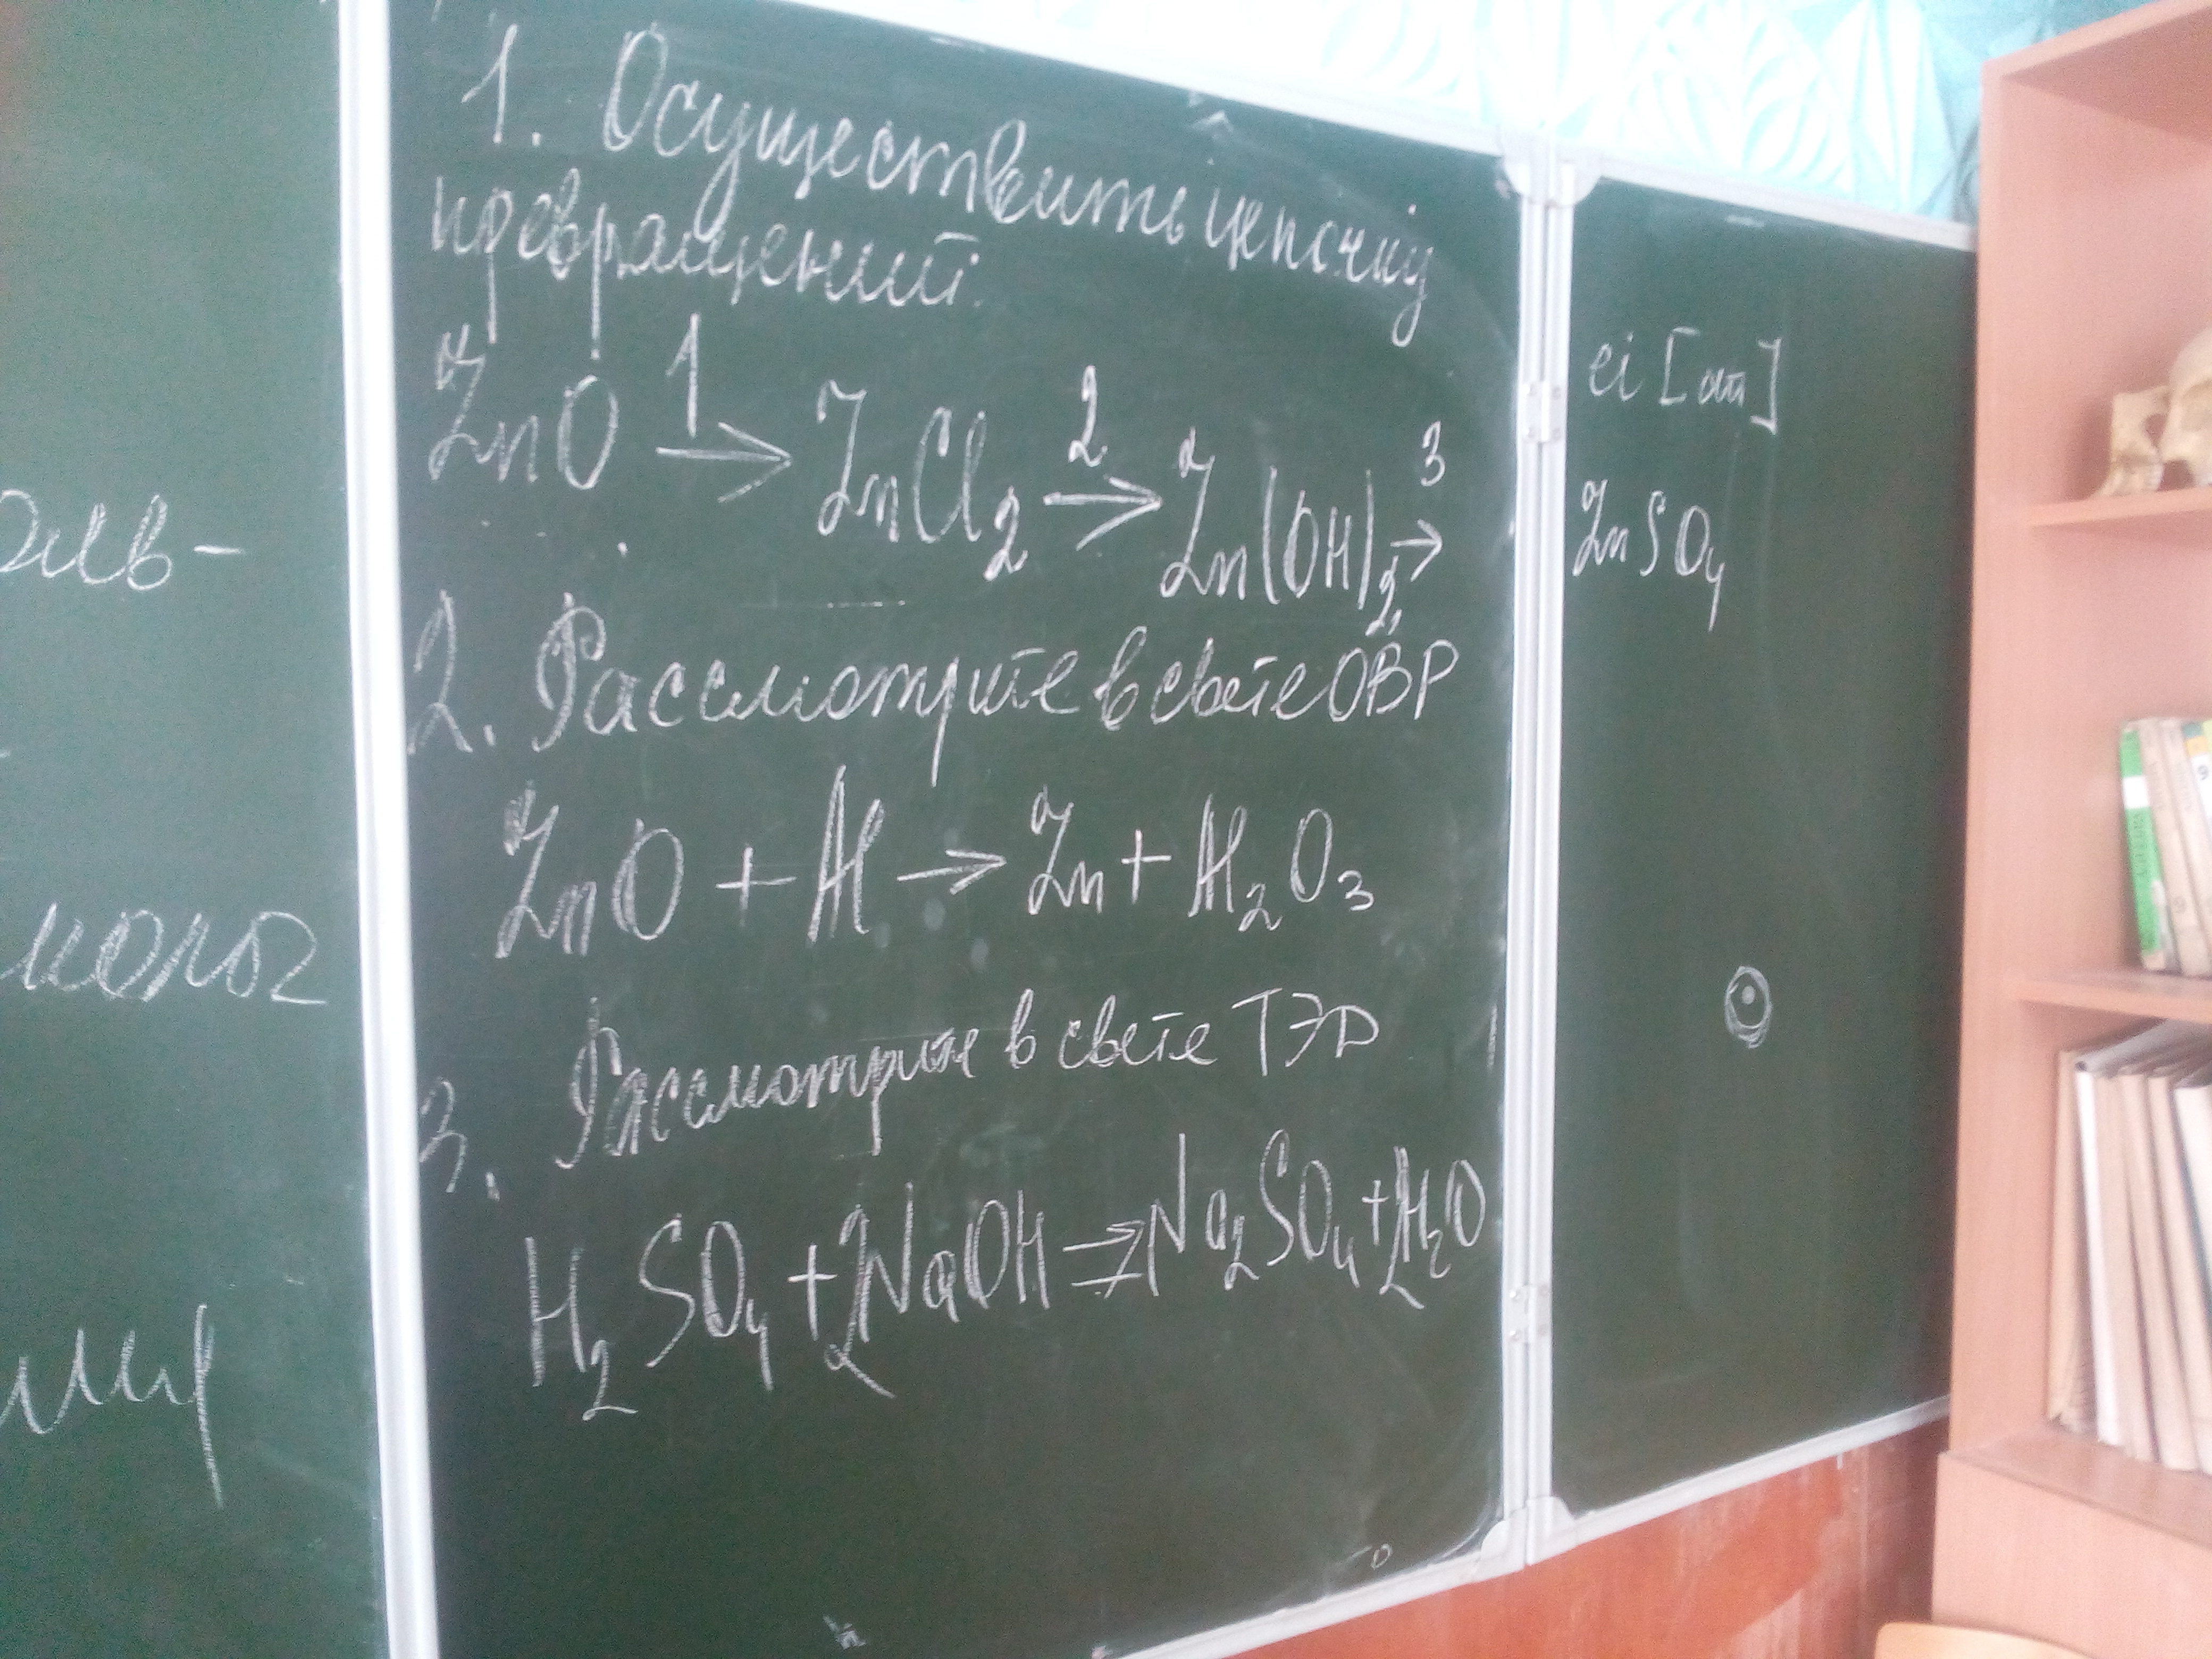 1. Осуществить цепочку
превращений:
ZnO 1→ ZnCl₂ 2→ Zn(OH)₂ 3→ ZnSO₄
2. Рассмотрите в свете ОВР
ZnO + Al → Zn + Al₂O₃
3. Рассмотрите в свете ТЭД
H₂SO₄ + 2NaOH ⇒ Na₂SO₄ + 2H₂O
ei [ai]